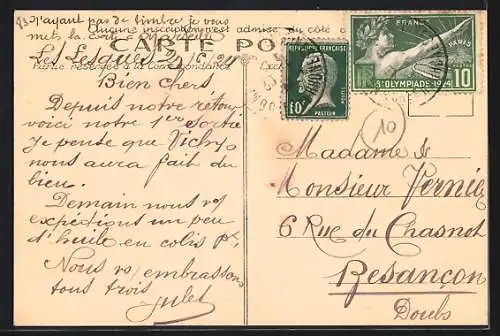 83 - N'ayant pas de timbre je vous
mets la carte à
Aucune inscription n'est admise du côté
CARTE PO
Les Lesques 6/24
Partie réservée à la correspondance
Bien chers
Depuis notre retour
voici notre 1ère sortie
je pense que Vichy
nous aura fait du
bien.
Demain nous vs
expédions un peu
d'huile en colis pl.
Nous vs embrassons
tous trois
Julet
REPUBLIQUE FRANÇAISE
POSTES
PASTEUR
FRANCE
PARIS
8e OLYMPIADE 1924
10
10
Madame &
Monsieur Vernie
6 Rue du Chasnot
Besançon
Doubs